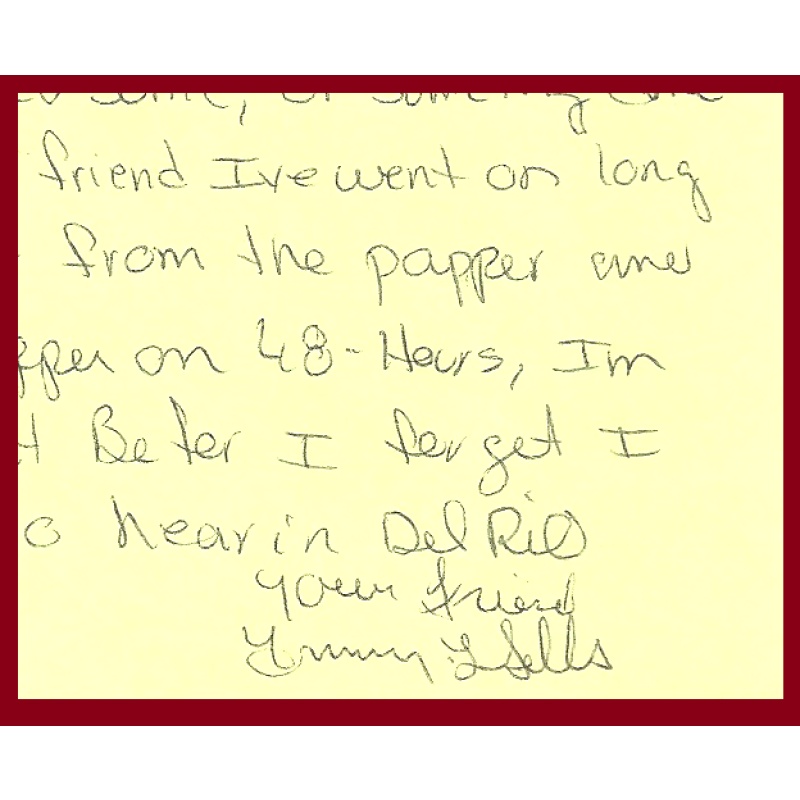 friend Ive went on long
from the papper and
pper on 48-Hours, Im
Be ter I for get I
o hear in Del Rio
your friend
Tommy L Sells